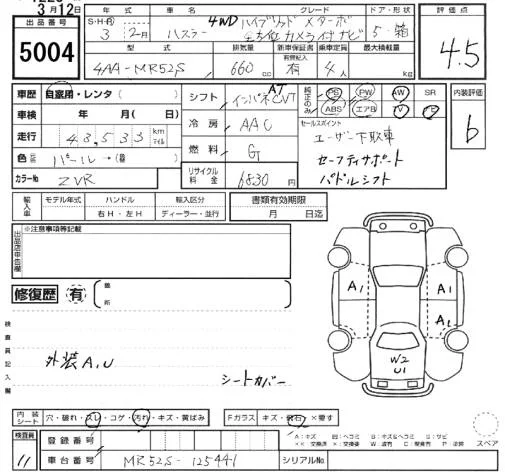 3月12日
出品番号
5004
年式 車名 グレード ドア・形状 評価点
S・H・R 3年 2月 ハスラー 4WD ハイブリッド Xターボ 全方位カメラ付ナビ 5 箱 4.5
型式 排気量 新車保証書 乗車定員 最大積載量
4AA-MR52S 660cc 有 4人 kg
車歴 自家用・レンタ( )
シフト AT インパネCVT
純正のみ PS PW AW SR
ABS エアB TV
内装評価 b
車検 年 月 日
冷房 AAC
セールスポイント
ユーザー下取車
走行 43,533 km マイル
燃料 G
セーフティサポート
色 パール→(色替
リサイクル料金 6830円
パドルシフト
カラーNo ZVR
輸入車 モデル年式 ハンドル 輸入区分 書類有効期限
右H・左H ディーラー・並行 月 日迄
出品店申告欄 ※注意事項等記載
修復歴 有 箇所
A1 A1 A1
検査員記入欄
外装A,U
シートカバー
W2
U1
内装シート 穴・破れ・スレ・コゲ・汚れ・キズ・黄ばみ Fガラス キズ・飛石・×要す
A:キズ U:ヘコミ B:キズ&ヘコミ S:サビ
XX:交換済 X:交換 W:波有 C:腐食有 P:塗装 スペア
検査員 11
登録番号
車台番号 MR52S-125441 シリアルNo